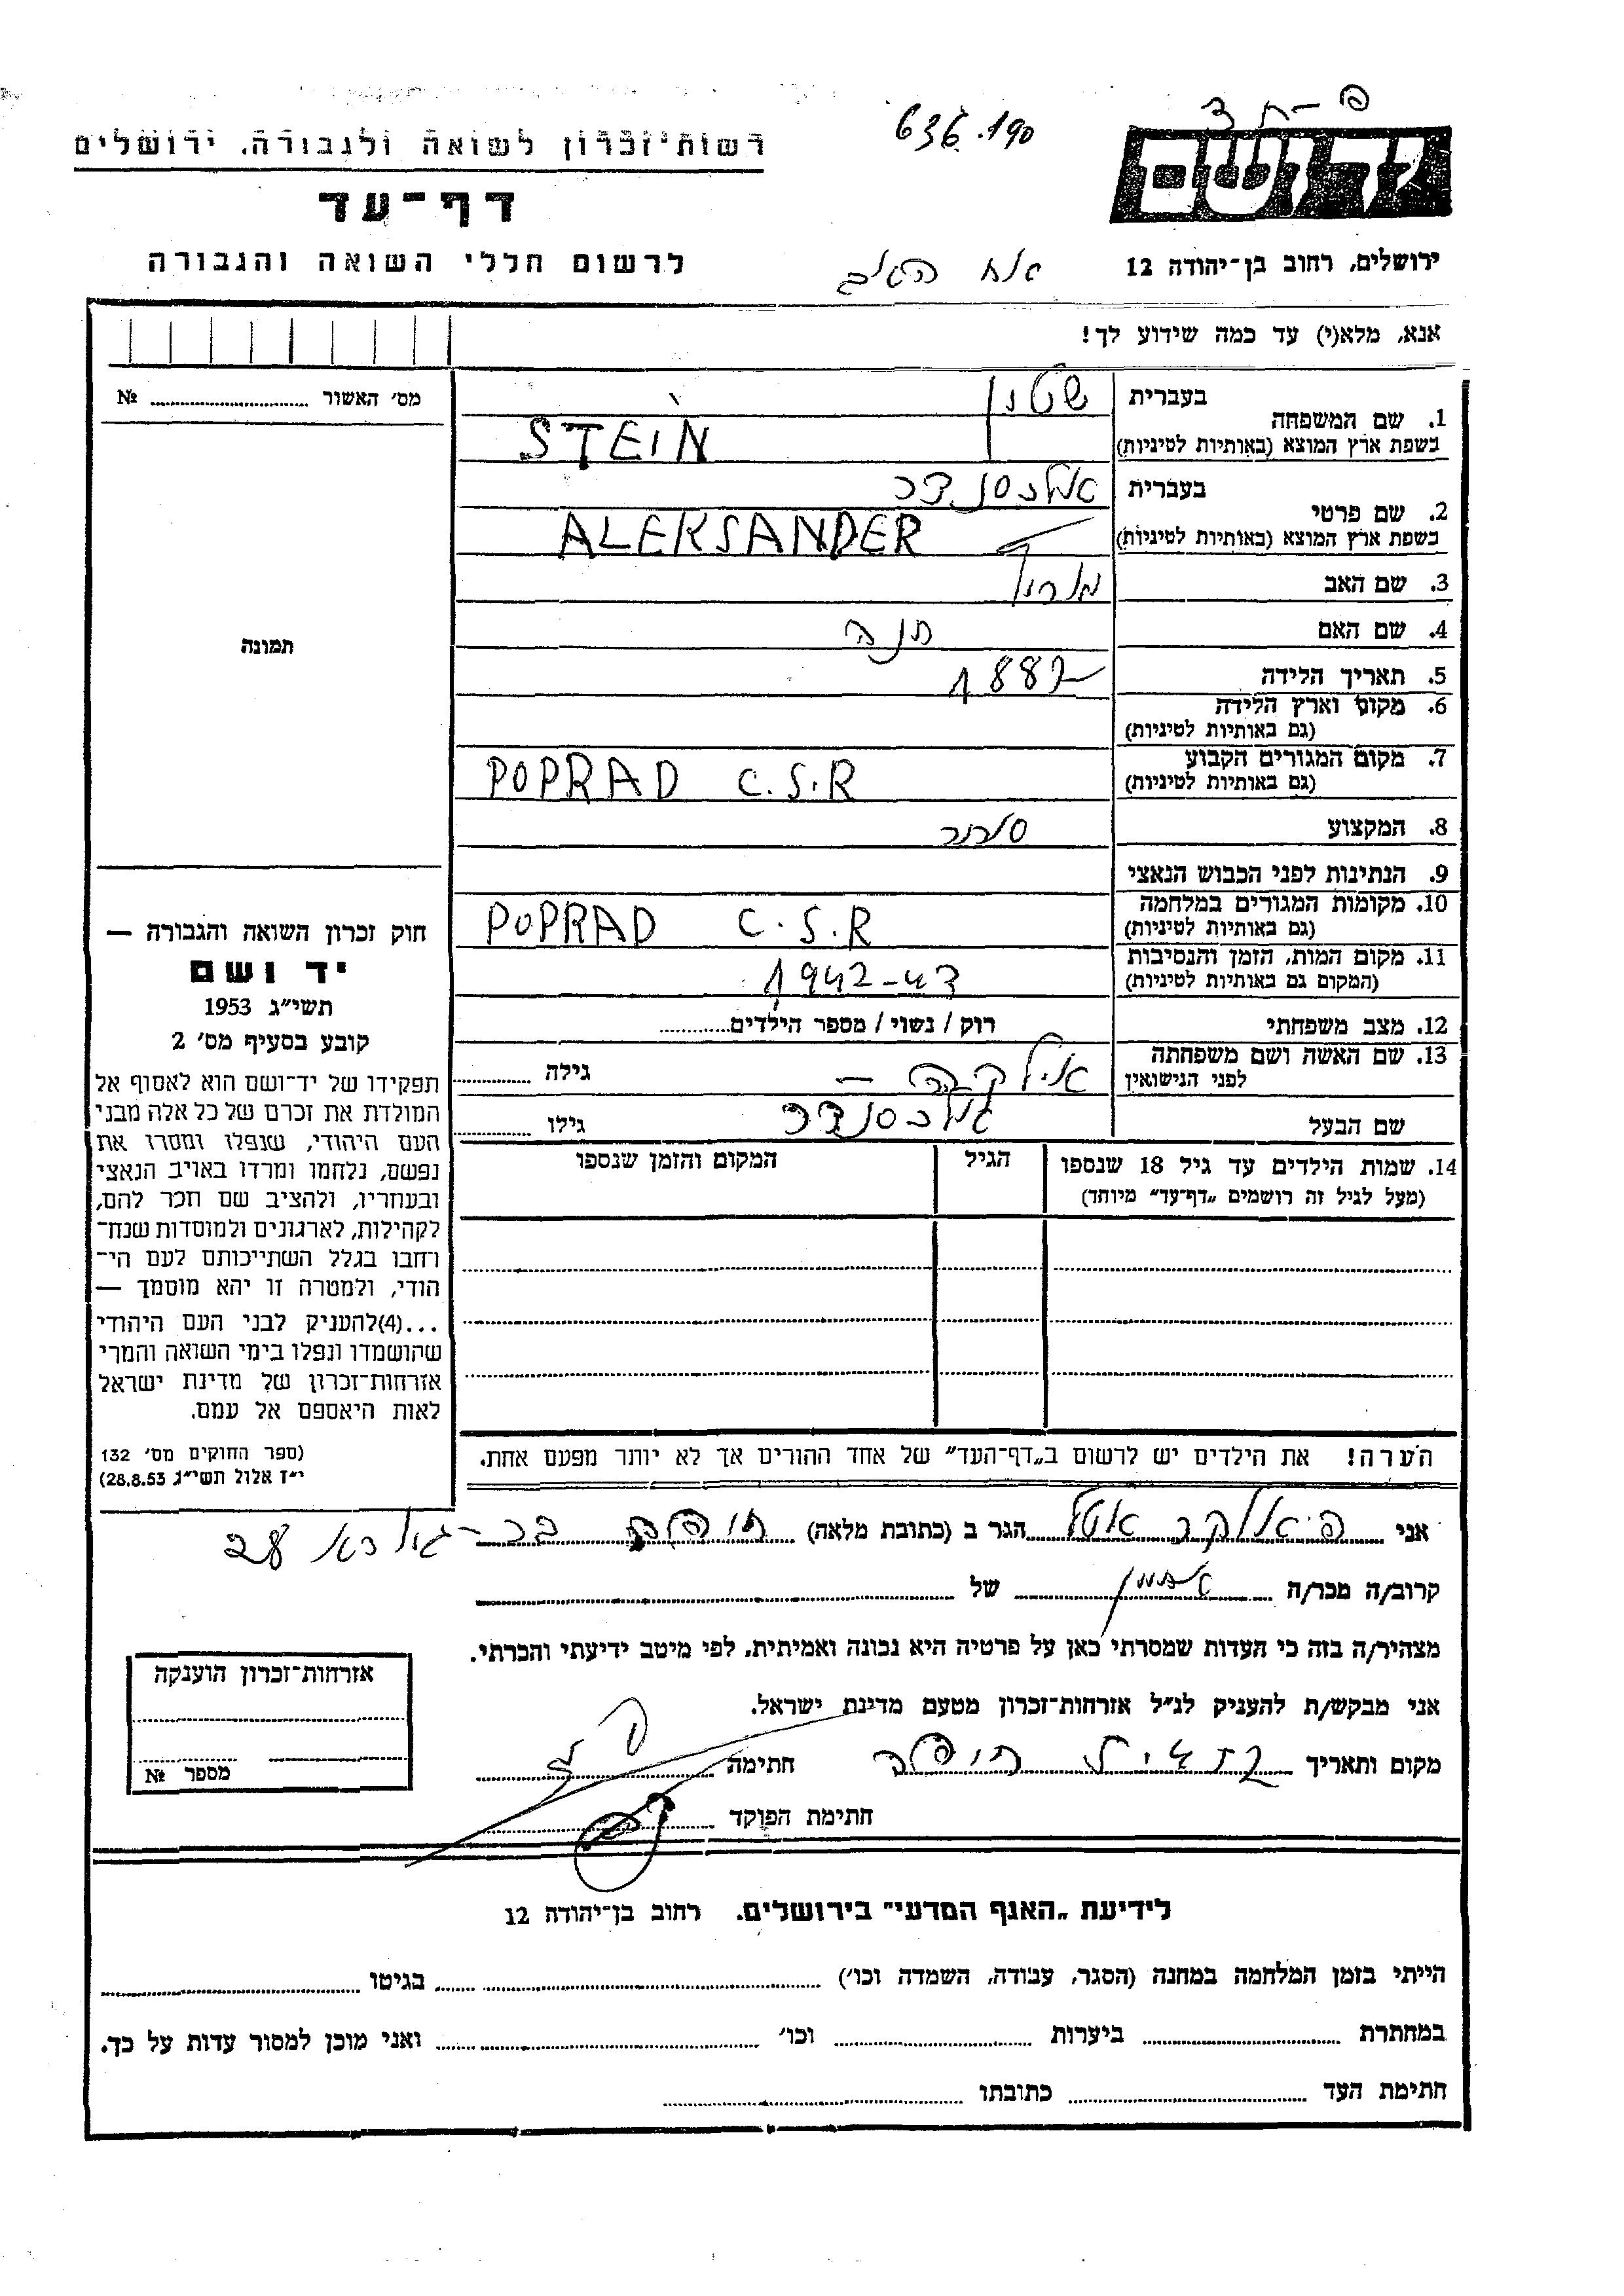 636.190
יד ושם
רשות־זכרון לשואה ולגבורה, ירושלים
דף־עד
לרשום חללי השואה והגבורה
ירושלים, רחוב בן־יהודה 12
אנא, מלא(י) עד כמה שידוע לך!
מס׳ האשור ........ №
תמונה
1. שם המשפחה בעברית שטין
בשפת ארץ המוצא (באותיות לטיניות) STEIN
2. שם פרטי בעברית אלכסנדר
בשפת ארץ המוצא (באותיות לטיניות) ALEKSANDER
3. שם האב
4. שם האם חנה
5. תאריך הלידה 1882
6. מקום וארץ הלידה
(גם באותיות לטיניות)
7. מקום המגורים הקבוע
(גם באותיות לטיניות) POPRAD C.S.R
8. המקצוע סוחר
9. הנתינות לפני הכבוש הנאצי
10. מקומות המגורים במלחמה
(גם באותיות לטיניות) POPRAD C.S.R
11. מקום המות, הזמן והנסיבות
(המקום גם באותיות לטיניות) 1942-43
12. מצב משפחתי רוק / נשוי / מספר הילדים........
13. שם האשה ושם משפחתה
לפני הנישואין גילה ........
שם הבעל אלכסנדר גילו ........
14. שמות הילדים עד גיל 18 שנספו
(מעל לגיל זה רושמים „דף־עד” מיוחד)
הגיל
המקום והזמן שנספו
חוק זכרון השואה והגבורה —
יד ושם
תשי״ג 1953
קובע בסעיף מס׳ 2
תפקידו של יד־ושם הוא לאסוף אל
המולדת את זכרם של כל אלה מבני
העם היהודי, שנפלו ומסרו את
נפשם, נלחמו ומרדו באויב הנאצי
ובעוזריו, ולהציב שם וזכר להם,
לקהילות, לארגונים ולמוסדות שנח־
רחבו בגלל השתייכותם לעם הי־
הודי, ולמטרה זו יהא מוסמך —
...(4)להעניק לבני העם היהודי
שהושמדו ונפלו בימי השואה והמרי
אזרחות־זכרון של מדינת ישראל
לאות היאספם אל עמם.
(ספר החוקים מס׳ 132
י״ז אלול תשי״ג 28.8.53)
הערה! את הילדים יש לרשום ב„דף־העד” של אחד ההורים אך לא יותר מפעם אחת.
אני ........ הגר ב (כתובת מלאה) חיפה
קרוב/ה מכר/ה ........ של ........
מצהיר/ה בזה כי העדות שמסרתי כאן על פרטיה היא נכונה ואמיתית, לפי מיטב ידיעתי והכרתי.
אני מבקש/ת להעניק לנ״ל אזרחות־זכרון מטעם מדינת ישראל.
מקום ותאריך חיפה חתימה
חתימת הפוקד
אזרחות־זכרון הוענקה
מספר №
לידיעת „האגף המדעי” בירושלים, רחוב בן־יהודה 12
הייתי בזמן המלחמה במחנה (הסגר, עבודה, השמדה וכו׳) ........ בגיטו ........
במחתרת ........ ביערות ........ וכו׳ ........ ואני מוכן למסור עדות על כך.
חתימת העד ........ כתובתו ........